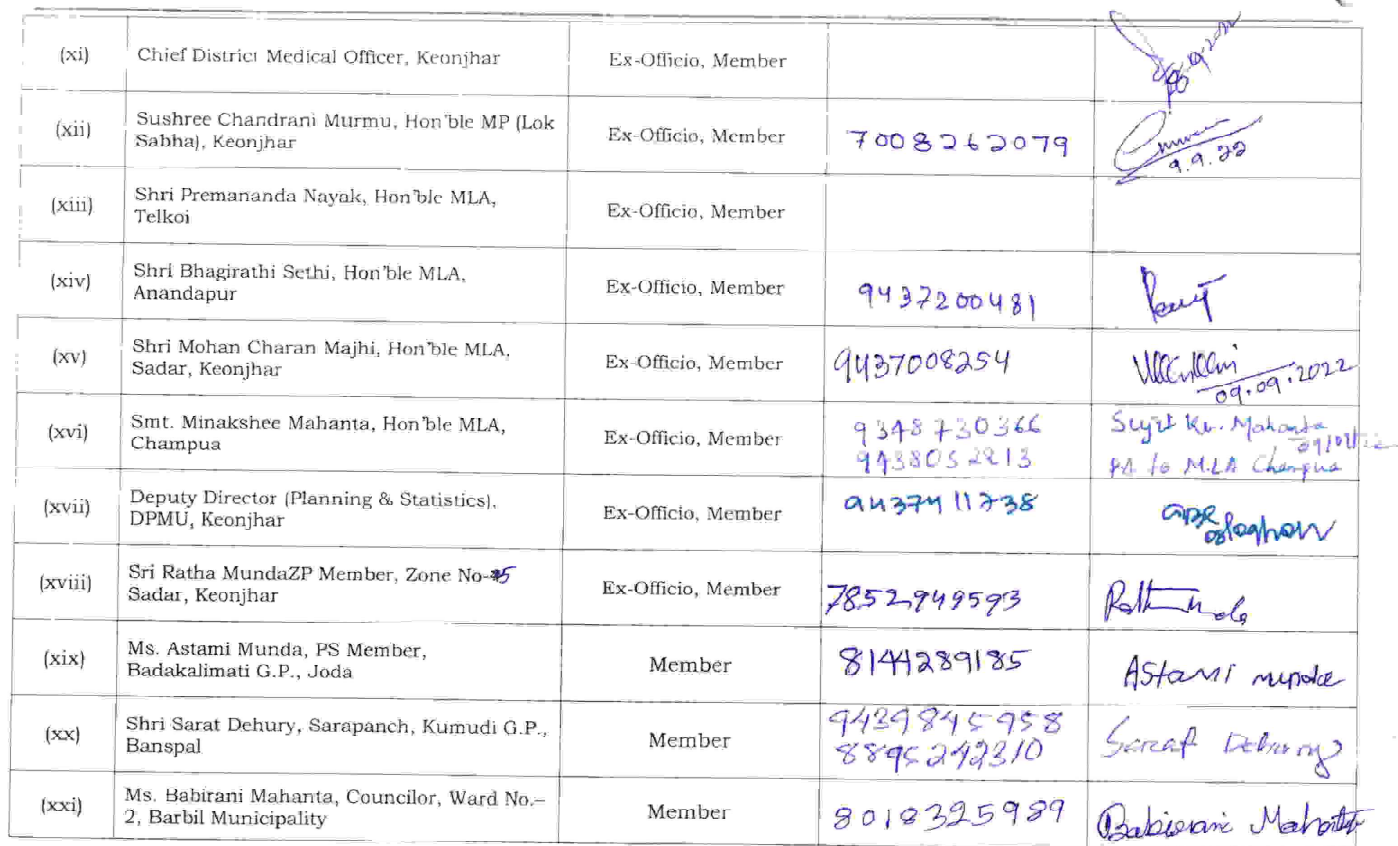 (xi) Chief District Medical Officer, Keonjhar Ex-Officio, Member
(xii) Sushree Chandrani Murmu, Hon'ble MP (Lok
Sabha), Keonjhar Ex-Officio, Member 7008262079
9.9.22
(xiii) Shri Premananda Nayak, Hon'ble MLA,
Telkoi Ex-Officio, Member
(xiv) Shri Bhagirathi Sethi, Hon'ble MLA,
Anandapur Ex-Officio, Member 9437200481
(xv) Shri Mohan Charan Majhi, Hon'ble MLA,
Sadar, Keonjhar Ex-Officio, Member 9437008254
09.09.2022
(xvi) Smt. Minakshee Mahanta, Hon'ble MLA,
Champua Ex-Officio, Member 9348730366 Sujit Ku. Mahanta
9438052213 PA to M.L.A Champua
(xvii) Deputy Director (Planning & Statistics),
DPMU, Keonjhar Ex-Officio, Member 9437411738
(xviii) Sri Ratha MundaZP Member, Zone No-5
Sadar, Keonjhar Ex-Officio, Member 7852949593
(xix) Ms. Astami Munda, PS Member,
Badakalimati G.P., Joda Member 8144289185 Astami munda
(xx) Shri Sarat Dehury, Sarapanch, Kumudi G.P.,
Banspal Member 9439845958
8895242310 Sarat Dehury
(xxi) Ms. Babirani Mahanta, Councilor, Ward No.–
2, Barbil Municipality Member 8018325989 Babirani Mahanta